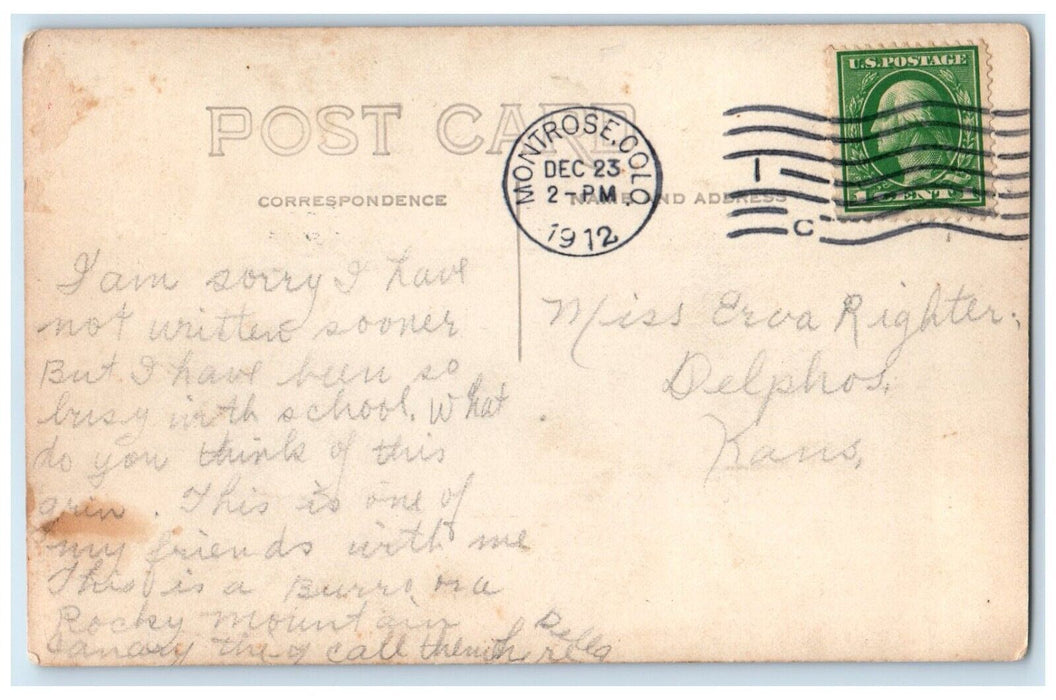 U.S. POSTAGE
1 CENT 1
POST CARD
MONTROSE, COLO.
DEC 23
2-PM
1912
1
C
CORRESPONDENCE
NAME AND ADDRESS
I am sorry I have
not written sooner
But I have been so
busy with school. What
do you think of this
grin. This is one of
my friends with me
This is a Burro or a
Rocky Mountain
Canary they call them here
Della
Miss Erva Righter,
Delphos,
Kans,